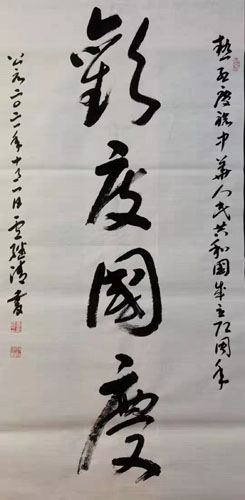 热烈慶祝中華人民共和國成立72周年
歡度國慶
公元二〇二一年十月一日